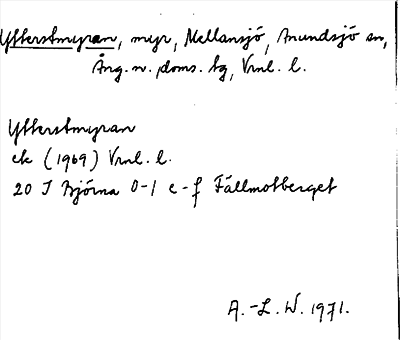 Ytterstmyran, myr, Mellansjö, Anundsjö sn,
Ång. n. doms. tg, Vml. l.
Ytterstmyran
ek (1969) Vml. l.
20 I Björna 0-1 e-f Fällmotberget
A.-L. W. 1971.